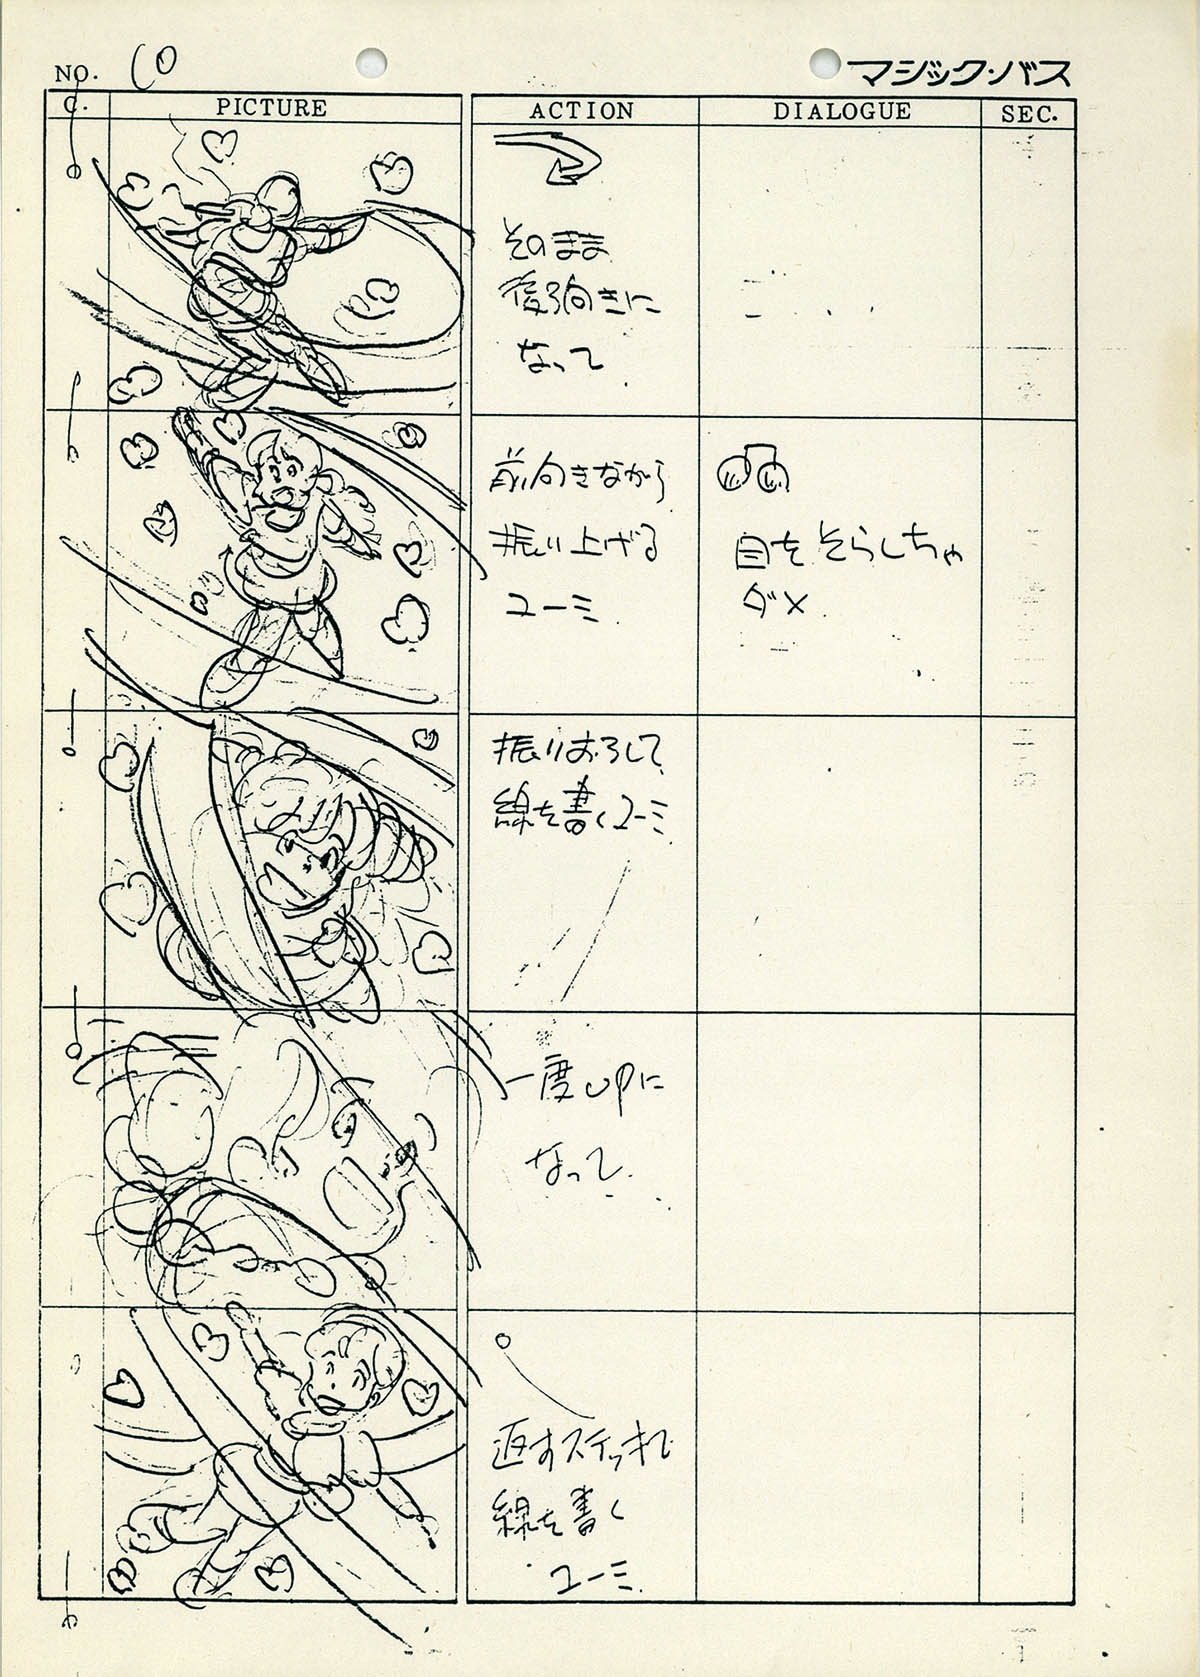 NO. 10
マジック・バス
C. PICTURE ACTION DIALOGUE SEC.
そのまま
後ろ向きに
なって
前向きながら
振り上げる
ユーミ
目をそらしちゃ
ダメ
振りおろして
線を書くユーミ
一度upに
なって
返すステッキで
線を書く
ユーミ